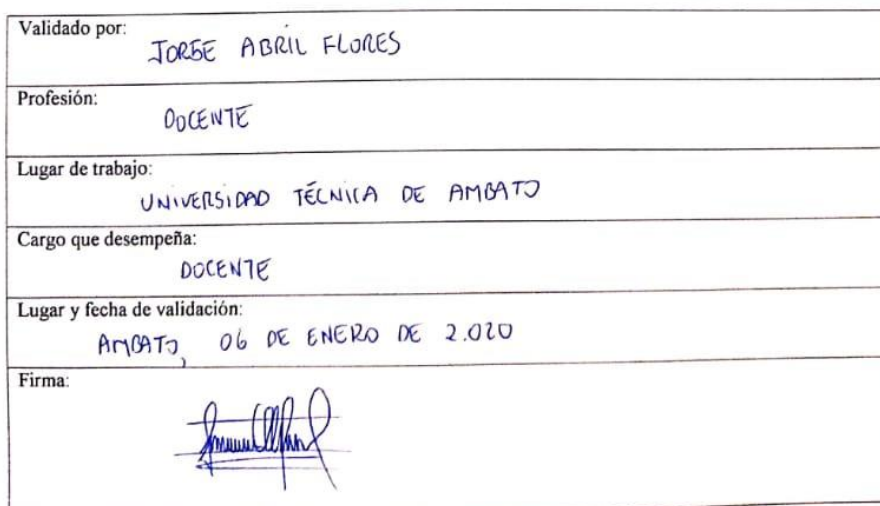 Validado por:
JORGE ABRIL FLORES
Profesión:
DOCENTE
Lugar de trabajo:
UNIVERSIDAD TÉCNICA DE AMBATO
Cargo que desempeña:
DOCENTE
Lugar y fecha de validación:
AMBATO, 06 DE ENERO DE 2.020
Firma: